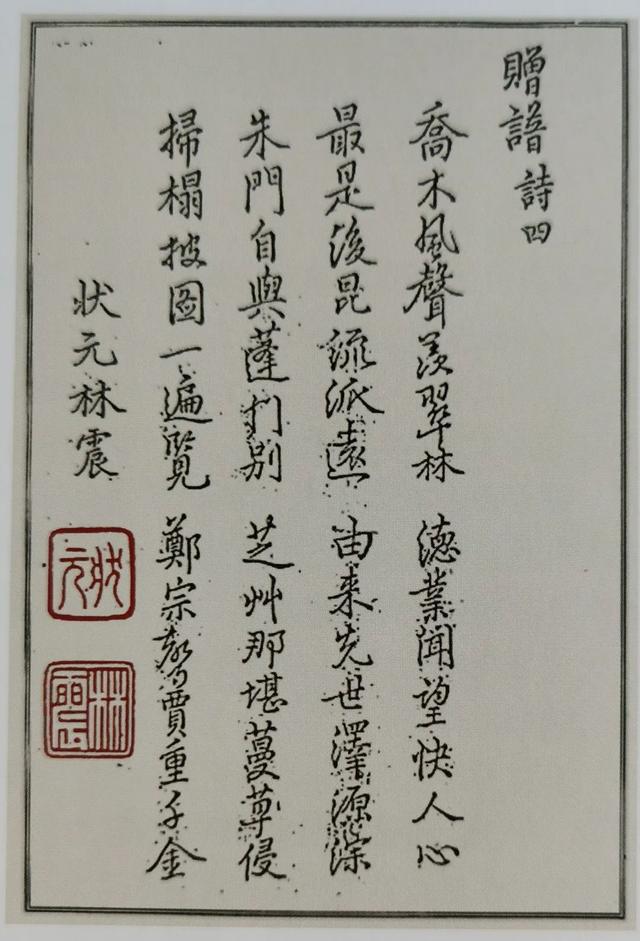 贈譜詩四
喬木風聲羨翠林 德業聞望快人心
最是後昆源派遠 由来先世澤源深
朱門自與蓬门别 芝艸那堪蔓草侵
掃榻披图一遍覽 鄭宗聲賈重千金
状元林震
状元
林震